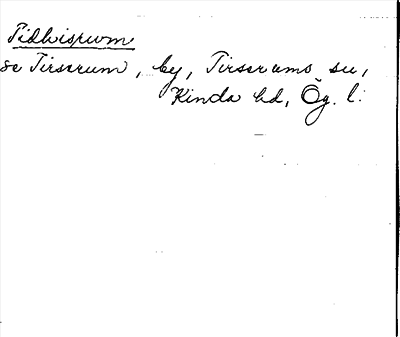 Tidhisrwm
se Tirserum, by, Tirserums sn,
Kinda hd, Ög. l.